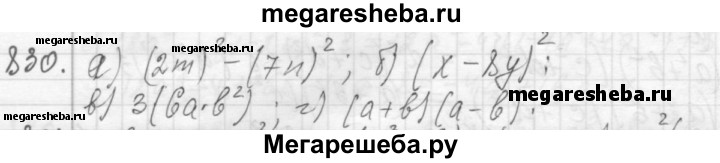 megaresheba.ru
830. а) (2m)² - (7n)²; б) (x - 8y)²;
в) 3(6a·b²); г) (a+b)(a-b).
megaresheba.ru
megaresheba.ru
Мегарешеба.ру